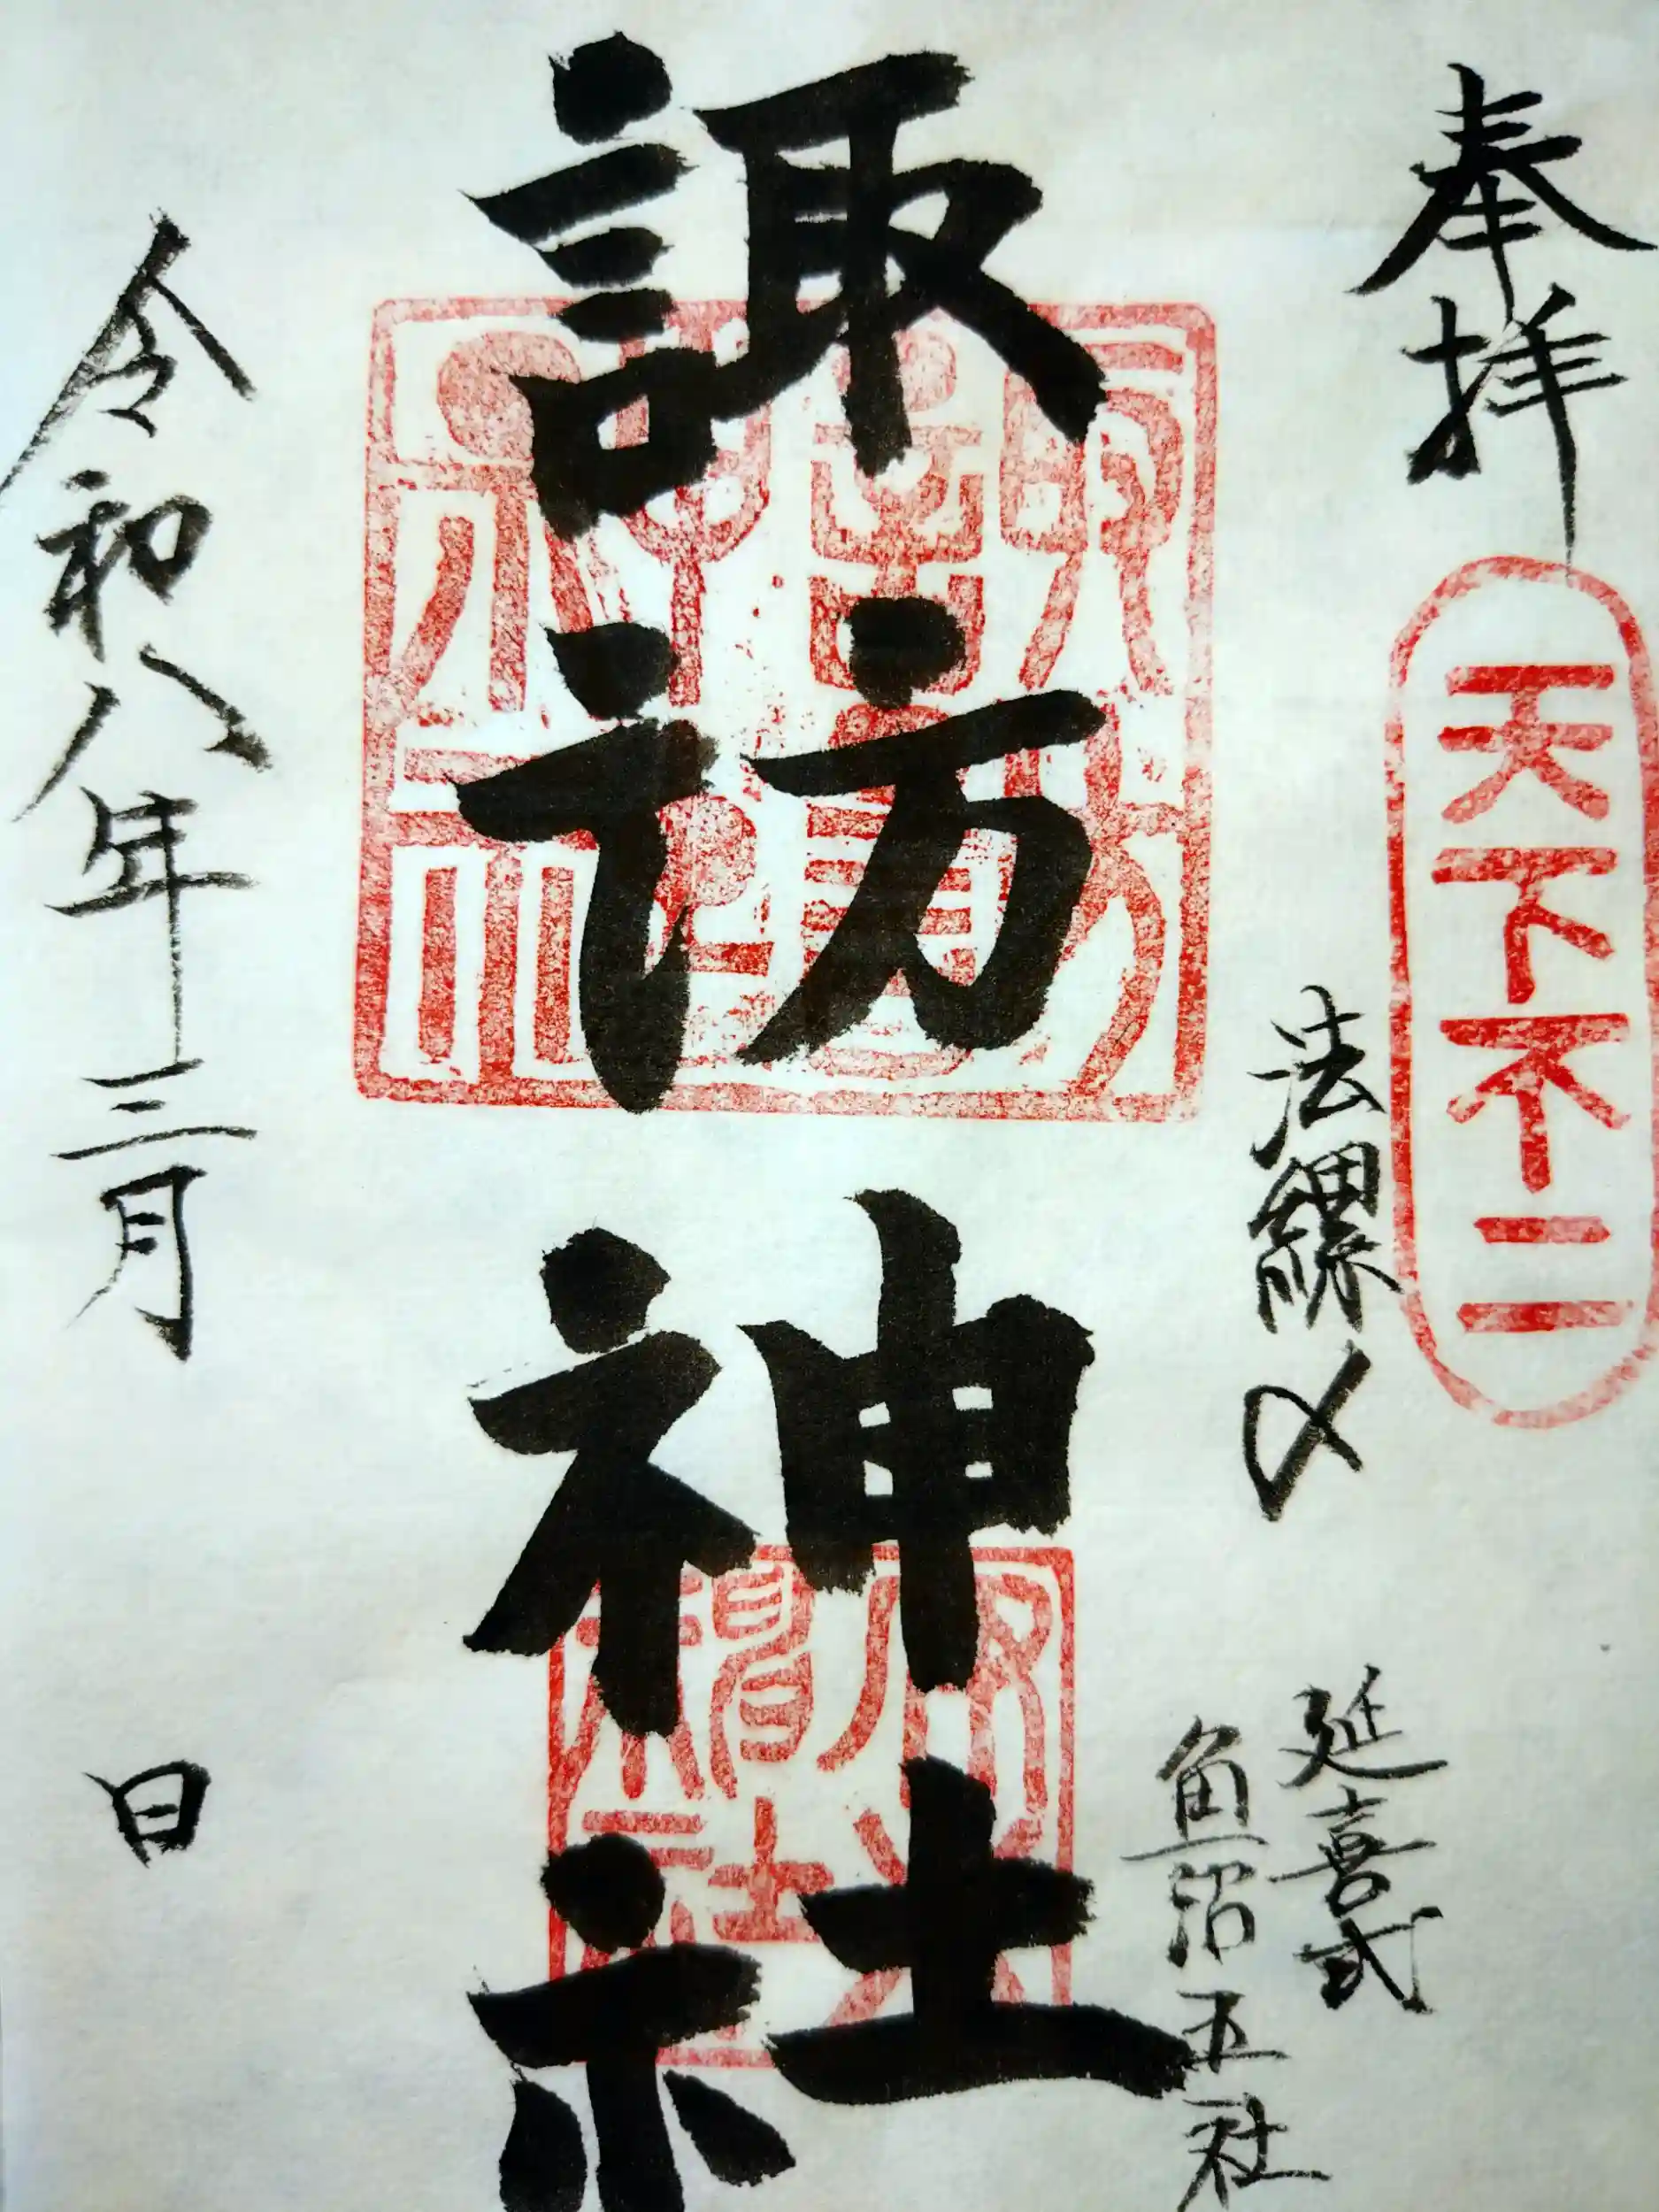 奉拝
天下不二
法螺〆
延喜式
魚沼五社
諏訪神社
令和八年三月 日